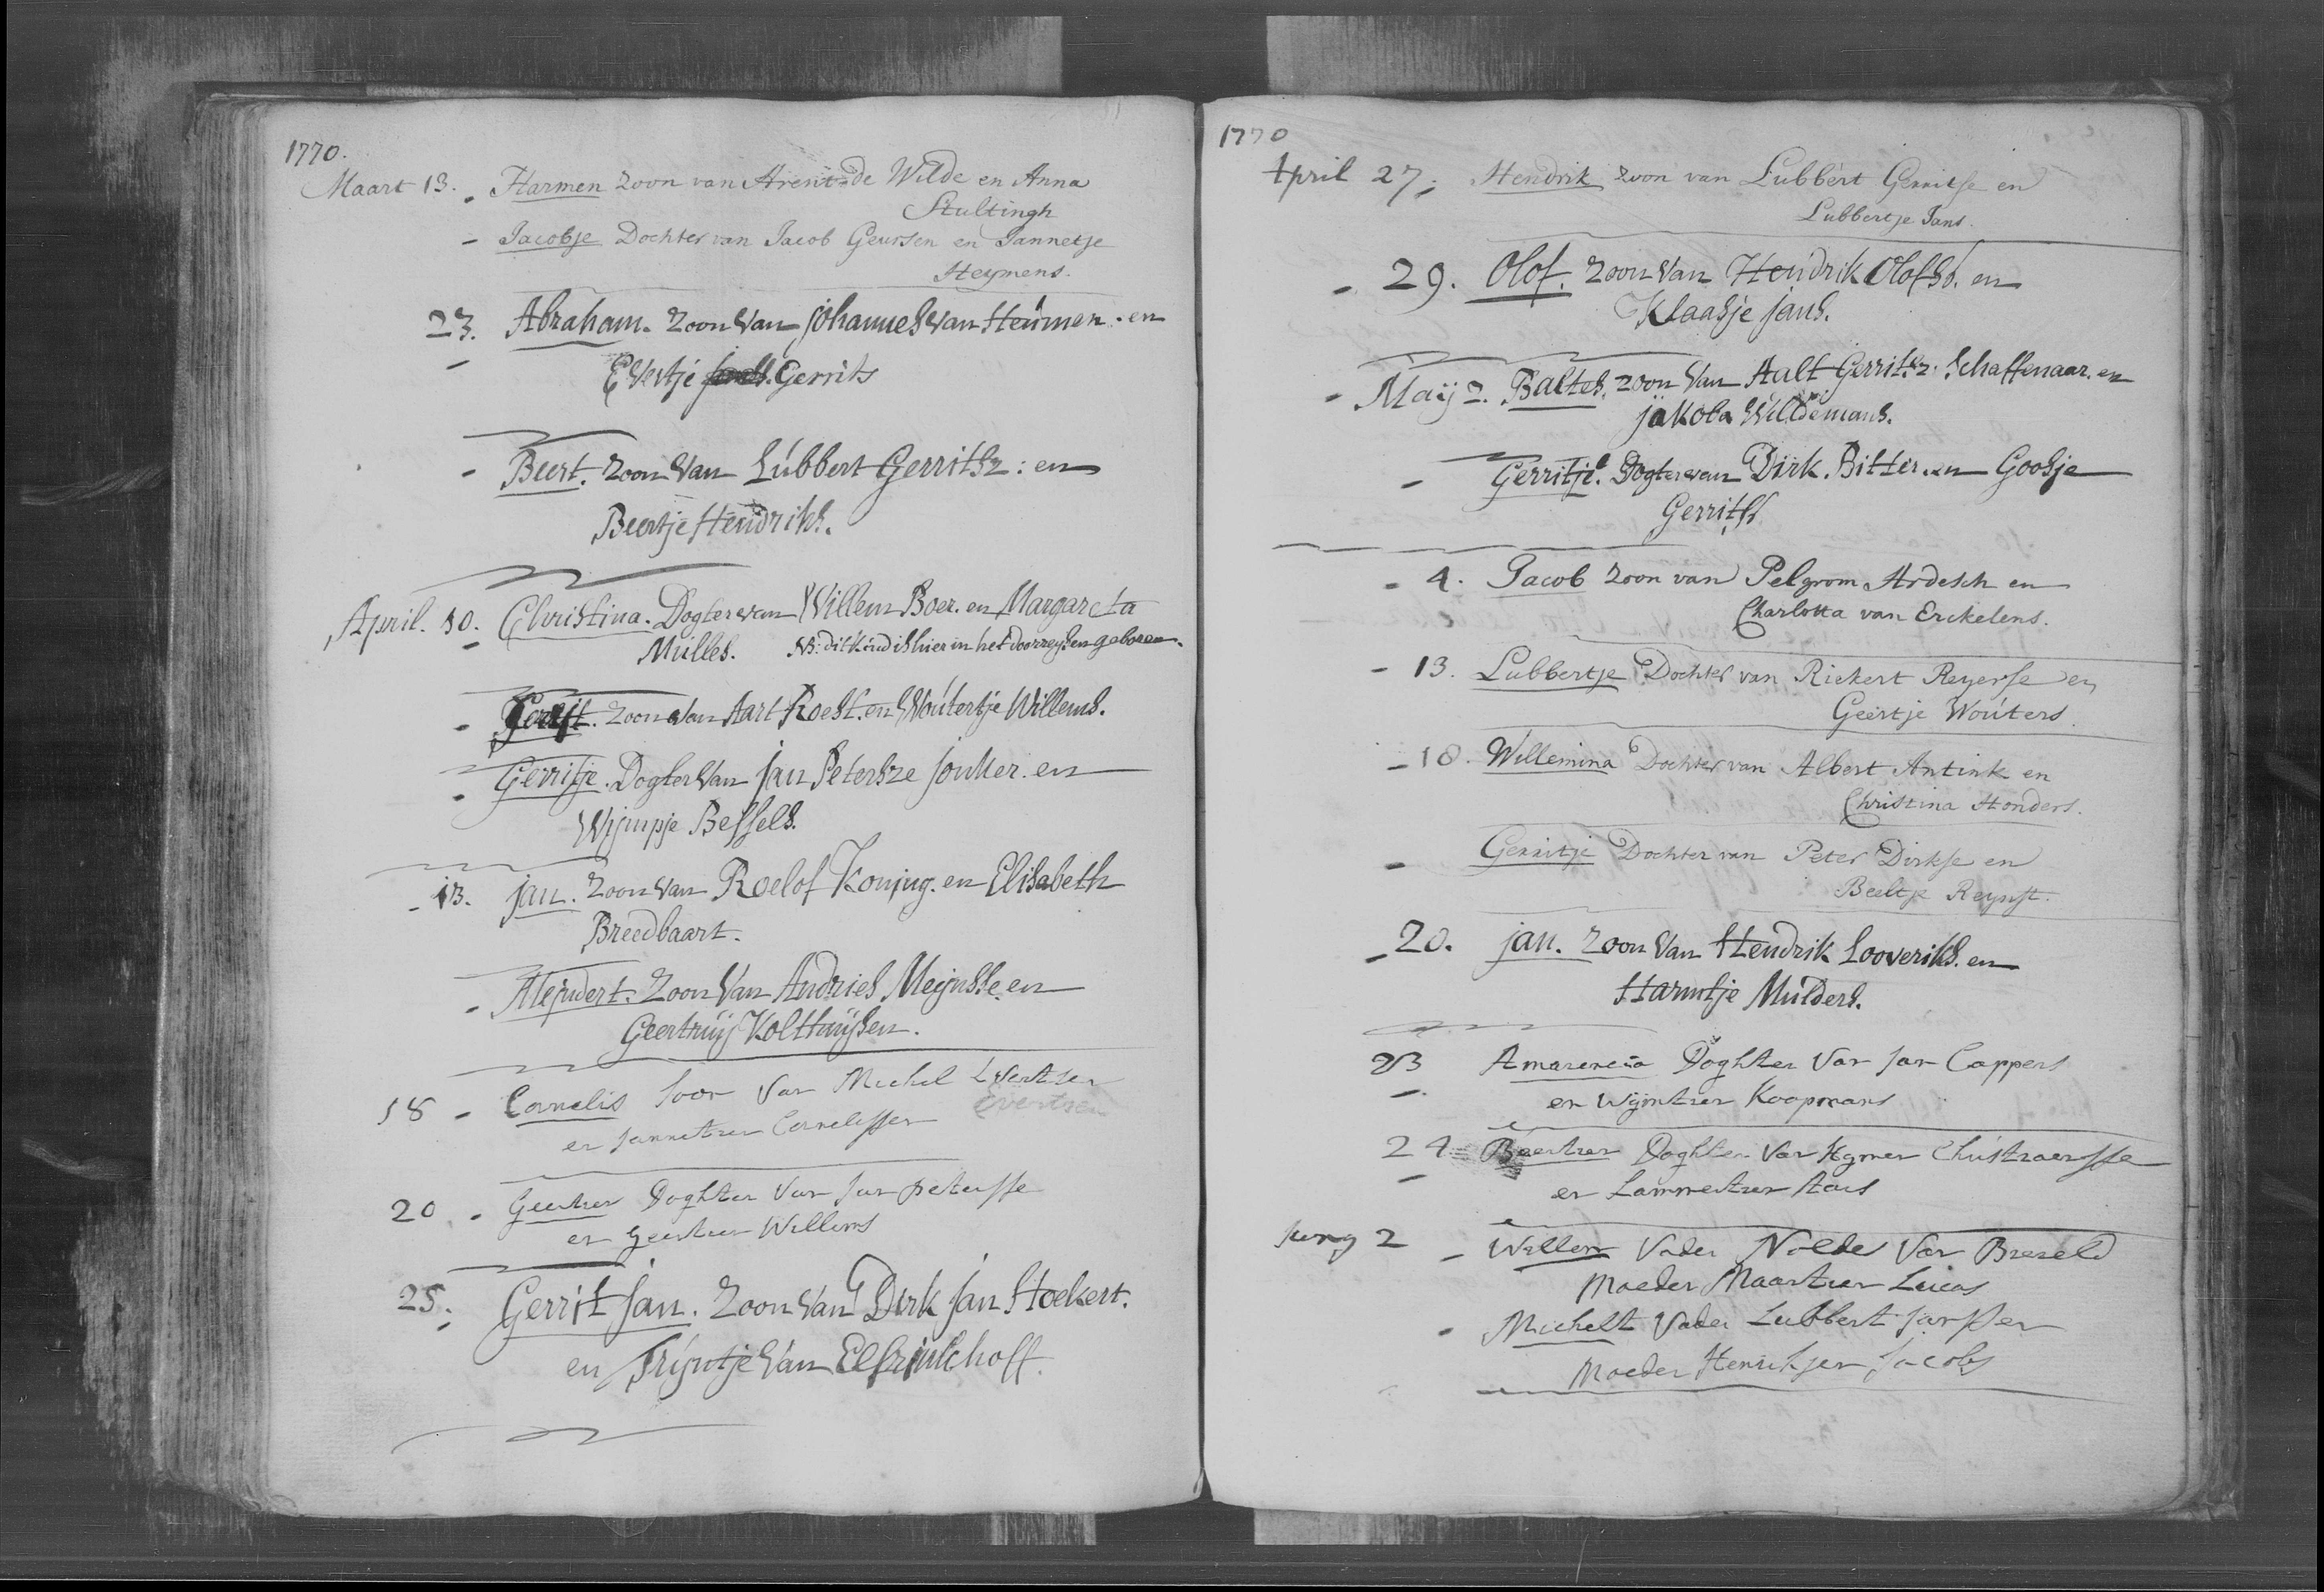 1770.
Maart 13. Harmen zoon van Arent de Wilde en Anna
Stultingh
- Jacobje Dochter van Jacob Geursen en Jannetje
Heymens.
23. Abraham. Zoon Van Johannes Van Heúmen. en
Evertje Gerrits
- Beert. Zoon Van Lúbbert Gerritsz: en
Beertje Hendriks.
April. 10. Christina. Dogter van Willem Boer. en Margareta
Mulles. NB: dit kind is hier in het doorreysen geboren.
- Gerrit. Zoon Van Aart Roest. en Woútertje Willems.
- Gerritje. Dogter Van Jan Petersze Jonker. en
Wijmpje Bessels.
- 13. Jan. Zoon Van Roelof Koning. en Elisabeth
Breedbaart.
- Meijndert. Zoon Van Andries Meijnsse. en
Geertruij Kolthuijsen.
18 - Cornelis Soon Van Michel Evertsen
Evertsen
en Jannetien Cornelissen
20 - Geertien Doghter Van Jan petersse
en geertien Willems
25. Gerrit Jan. Zoon Van Dirk Jan Stoekert.
en Trijntje Van
1770
April 27. Hendrik zoon van Lubbert Gerritse en
Lubbertje Jans.
- 29. Olof. Zoon Van Hendrik Olofs. en
Klaasje Jans.
- Maij 2. Baltes. zoon Van Aalt Gerritsz. Schaffenaar. en
Jakoba Wildemans.
- Gerritje. Dogter van Dirk. Bitter. en Goosje
Gerrits
- 4. Jacob zoon van Pelgrom Ardesch en
Charlotta van Erckelens.
- 13. Lubbertje Dochter van Rickert Reyerse en
Geertje Woúters.
- 18. Willemina Dochter van Albert Antink en
Christina Honders.
- Gerritje Dochter van Peter Dirkse en
Beeltje Reynst.
- 20. Jan. Zoon Van Hendrik Looveriks. en
Harmtje Múlders.
23 Amarencia Doghter Van Jan Cappers
en Wijntien Koopmans
24 Beertien Doghter Van Hymen Christiaensse
en Lammertien
Juny 2 - Willem Vader Nolde Van Breseld
Moeder Maartien Lucas
- Michelt Vader Lubbert Janssen
Moeder Henrikjen Jacobs